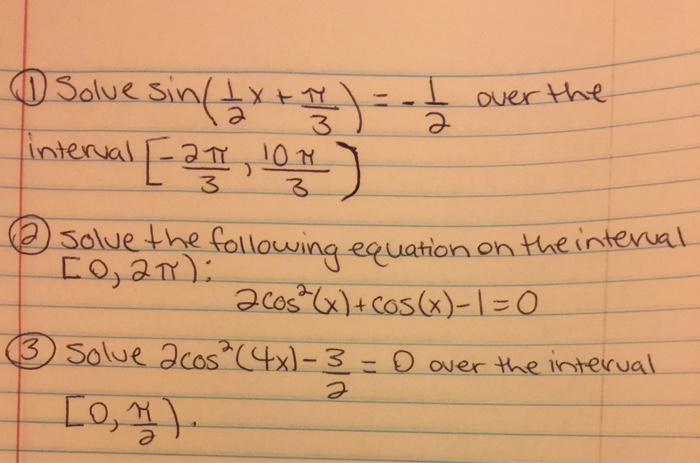 ① Solve sin(1/2 x + π/3) = -1/2 over the
interval [-2π/3, 10π/3)
② solve the following equation on the interval
[0, 2π):
2cos²(x)+cos(x)-1=0
③ Solve 2cos²(4x)-3/2 = 0 over the interval
[0, π/2).